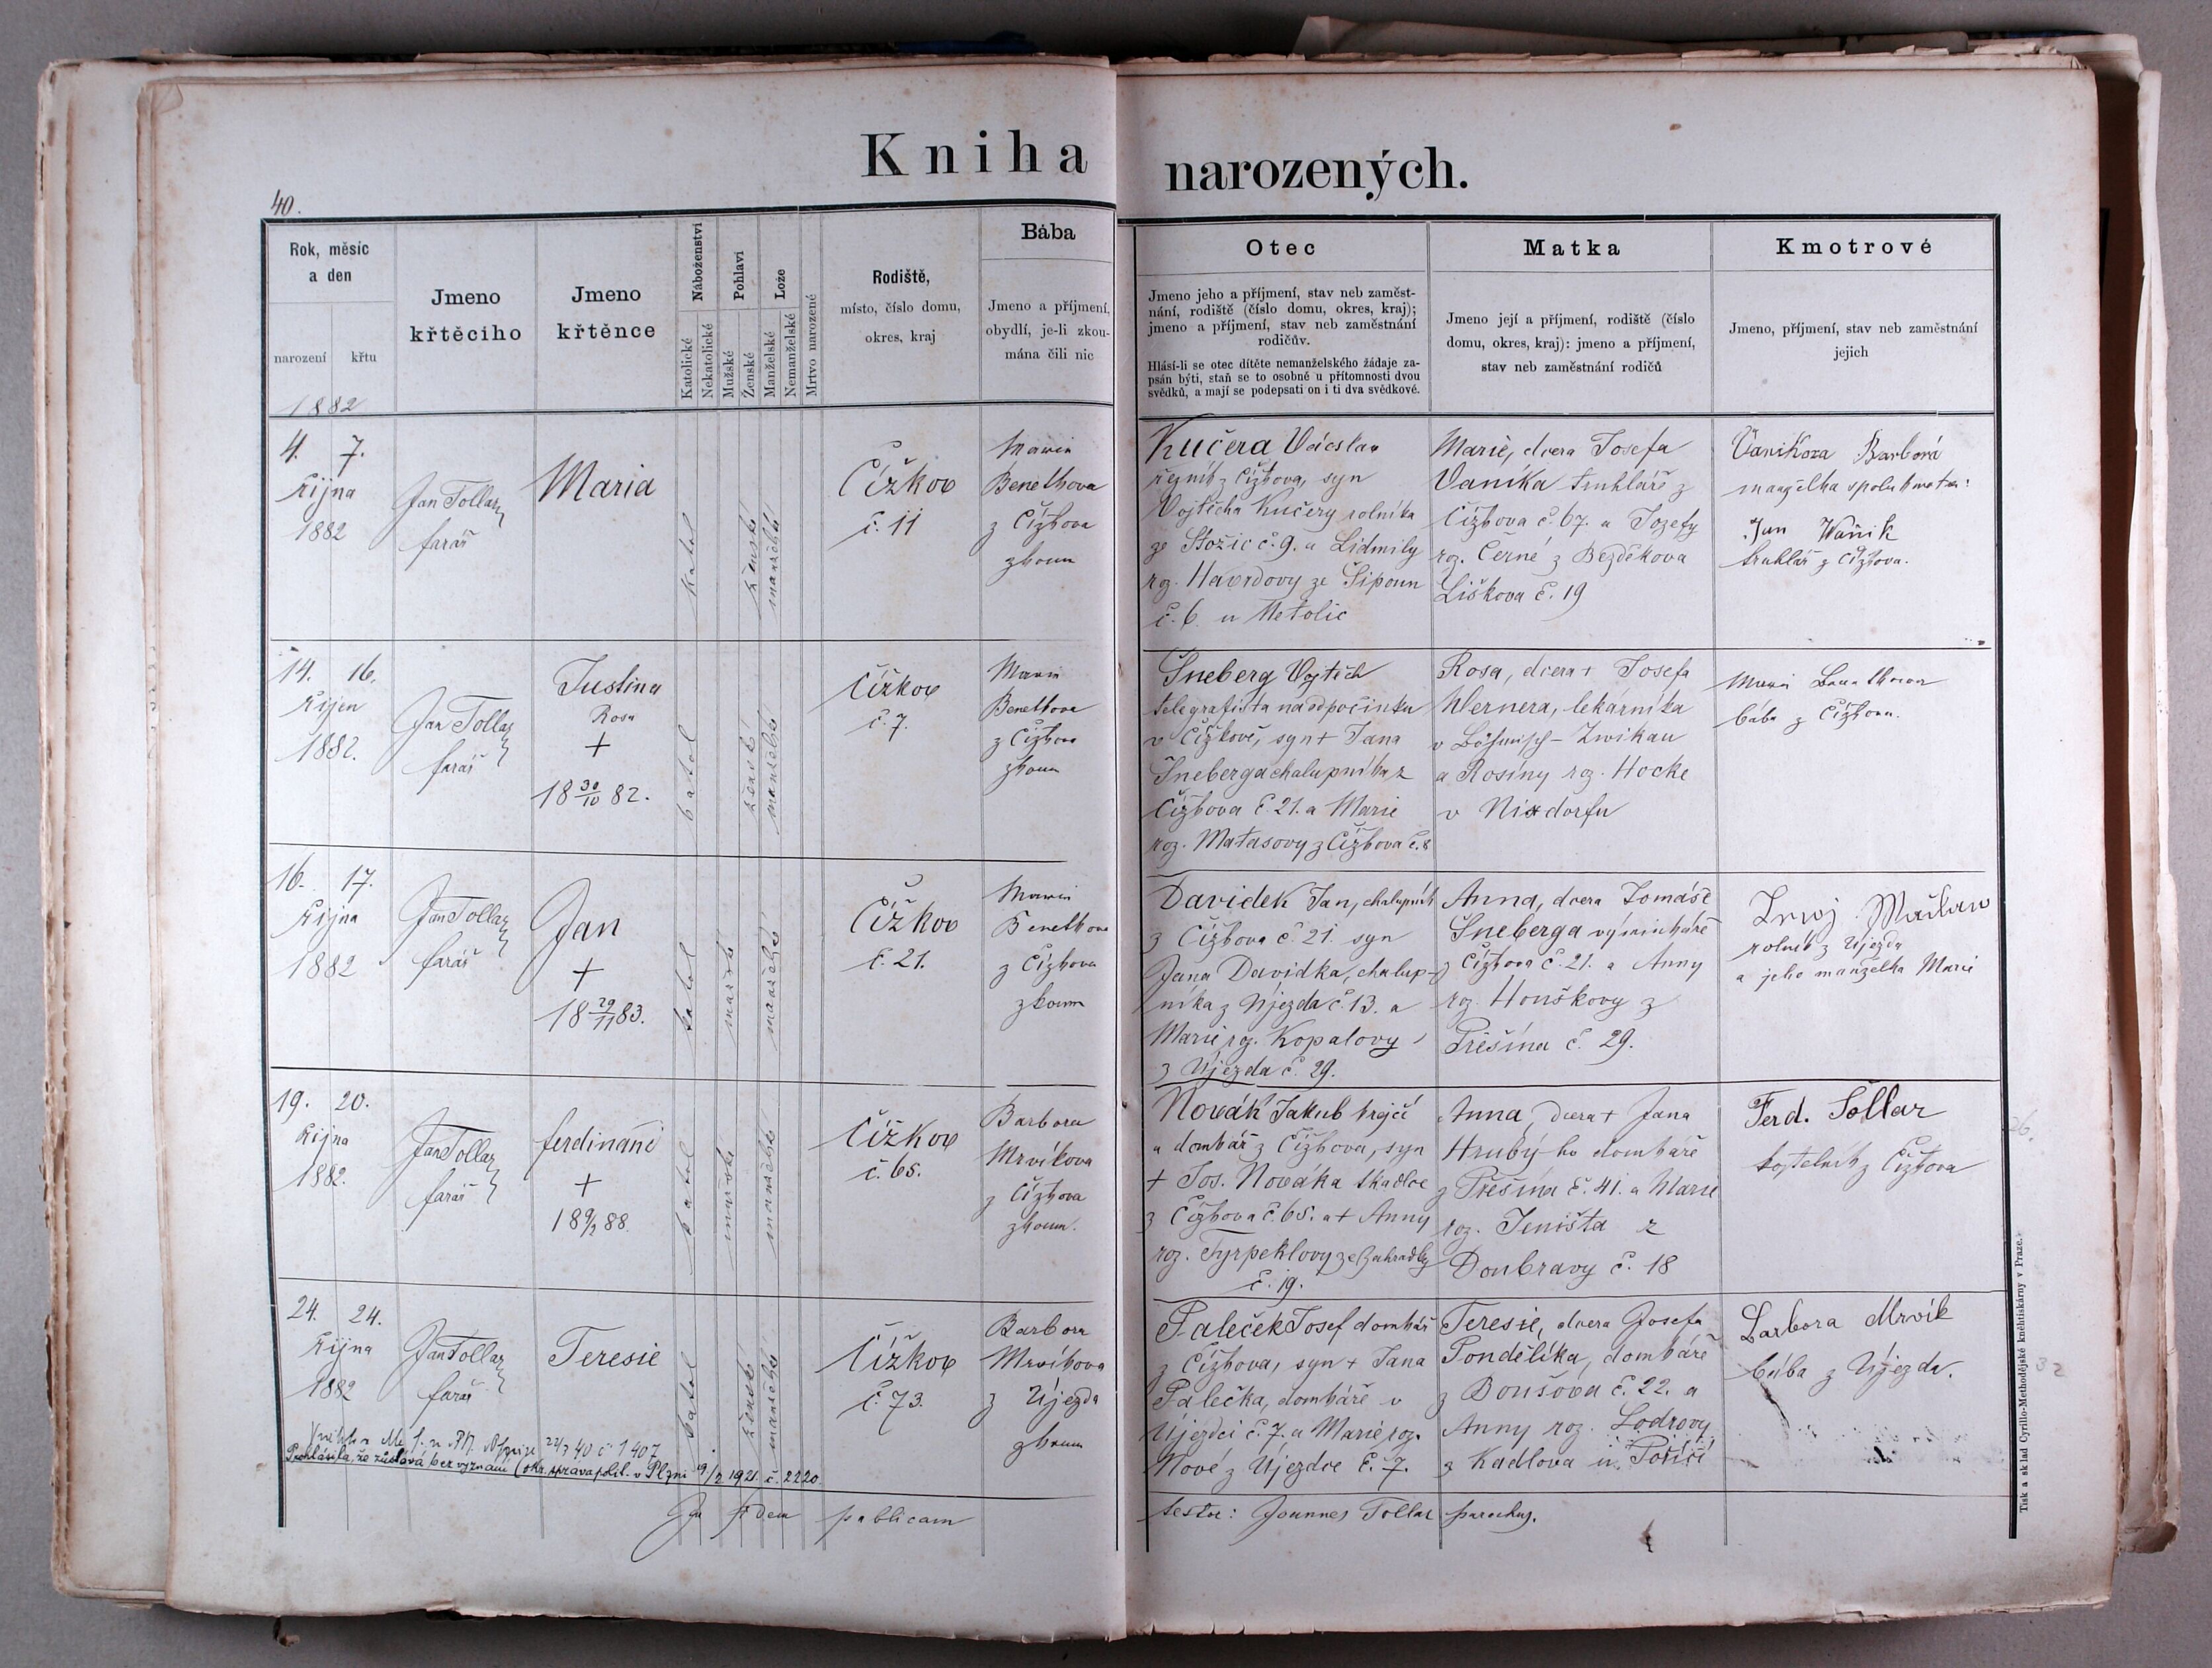 Kniha narozených.
40.
Rok, měsíc
a den
narození křtu
1882
Jmeno
křtěcího
Jmeno
křtěnce
Náboženství
Katolické
Nekatolické
Pohlaví
Mužské
Ženské
Lože
Manželské
Nemanželské
Mrtvo narozené
Rodiště,
místo, číslo domu,
okres, kraj
Bába
Jmeno a příjmení,
obydlí, je-li zkou-
mána čili nic
Otec
Jmeno jeho a příjmení, stav neb zaměst-
nání, rodiště (číslo domu, okres, kraj);
jmeno a příjmení, stav neb zaměstnání
rodičův.
Hlásí-li se otec dítěte nemanželského žádaje za-
psán býti, staň se to osobně u přítomnosti dvou
svědků, a mají se podepsati on i ti dva svědkové.
Matka
Jmeno její a příjmení, rodiště (číslo
domu, okres, kraj): jmeno a příjmení,
stav neb zaměstnání rodičů
Kmotrové
Jmeno, příjmení, stav neb zaměstnání
jejich
4. 7.
října
1882
Jan Tollar
farář
Maria
katol
ženské
manželské
Čížkov
č. 11
Marie
Benethova
z Čížkova
zkoum
Kučera Václav
řezník z Čížkova, syn
Vojtěcha Kučery rolníka
ze Stožic č. 9. a Lidmily
roz. Havrdovy ze Šipoun
č. 6. u Netolic
Marie, dcera Josefa
Vaníka truhláře z
Čížkova č. 67. a Josefy
roz. Černé z Bezděkova
Liškova č. 19
Vaníkova Barbora
manželka spolukmotra:
Jan Waňik
truhlář z Čížkova.
14. 16.
říjen
1882.
Jan Tollar
farář
Justina
Rosa
+
18 30/10 82.
katol
ženské
manželské
Čížkov
č. 7.
Marie
Benethova
z Čížkova
zkoum
Šneberg Vojtěch
telegrafista na odpočinku
v Čížkově, syn + Jana
Šneberga chalupníka z
Čížkova č 21. a Marie
roz. Matasovy z Čížkova č. 8
Rosa, dcera + Josefa
Wernera, lekárníka
v Böhmisch-Zwikau
a Rosiny roz. Hocke
v Nixdorfu
bába z Čížkova.
16. 17.
října
1882
Jan Tollar
farář
Jan
+
18 29/11 83.
katol
mužské
manželské
Čížkov
č. 21.
Marie
Benethova
z Čížkova
zkoum
Davidek Jan, chalupník
z Čížkova č. 21. syn
Jana Davidka, chalup-
níka z Újezda č. 13. a
Marie roz. Kopalovy
z Újezda č. 29.
Anna, dcera Tomáše
Šneberga výminkáře
z Čížkova č. 21. a Anny
roz. Houškovy z
Přešína č. 29.
rolník z Újezda
a jeho manželka Marie
19. 20.
října
1882.
Jan Tollar
farář
ferdinand
+
18 9/2 88.
katol
mužské
manželské
Čížkov
č. 65.
Barbora
Mrvíkova
z Čížkova
zkoum.
Novák Jakub krejčí
a domkář z Čížkova, syn
+ Jos. Nováka tkadlce
z Čížkova č. 65. a + Anny
roz. Tyrpeklovy ze Zahrádky
č. 19.
Anna, dcera + Jana
Hrubý-ho domkáře
z Přešína č. 41. a Marie
roz. Jeništa z
Doubravy č. 18
Ferd. Tollar
z Čížkova
24. 24.
října
1882
Jan Tollar
farář
Teresie
katol
ženské
manželské
Čížkov
č. 73.
Barbora
Mrvíkova
z Újezda
zkoum
Paleček Josef domkář
z Čížkova, syn + Jana
Palečka, domkáře v
Újezdci č. 7. a Marie roz.
Nové z Újezdce č. 7.
Teresie, dcera Josefa
Pondělíka, domkáře
z Boušova č. 22. a
Anny roz. Lodrovy
z Kadlova u Poříčí
Barbora Mrvík
bába z Újezda.
22/7 40 č 1407
Prohlásila, že zůstává bez vyznání (okr. správa polit. v Plzni 19/2 1921. č. 2220.
In fidem publicam
testor: Joannes Tollar parochus.
Tisk a sklad Cyrillo-Methodějské knihtiskárny v Praze.